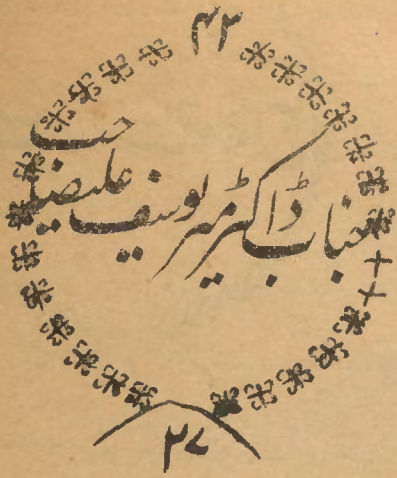 ۴۳
جناب ڈاکٹر میر یوسف علیصاحب
۳۷